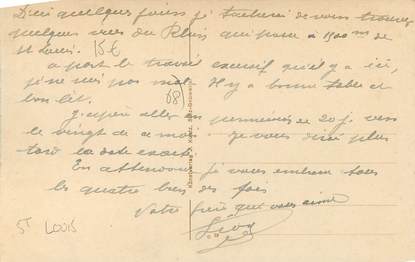 D'ici quelques jours je tacherai de vous trouver
quelques vues du Rhin qui passe à 1500 m de
St Louis. 15 €
à part le travail excessif qu'il y a ici,
je ne suis pas mal. Il y a bonne table et
bon lit. (68)
J'espère aller en permission de 20 j. vers
le vingt de ce mois. Je vous dirai plus
tard la date exacte.
En attendant je vous embrasse tous
les quatre bien des fois
Votre frère qui vous aime
ST LOUIS